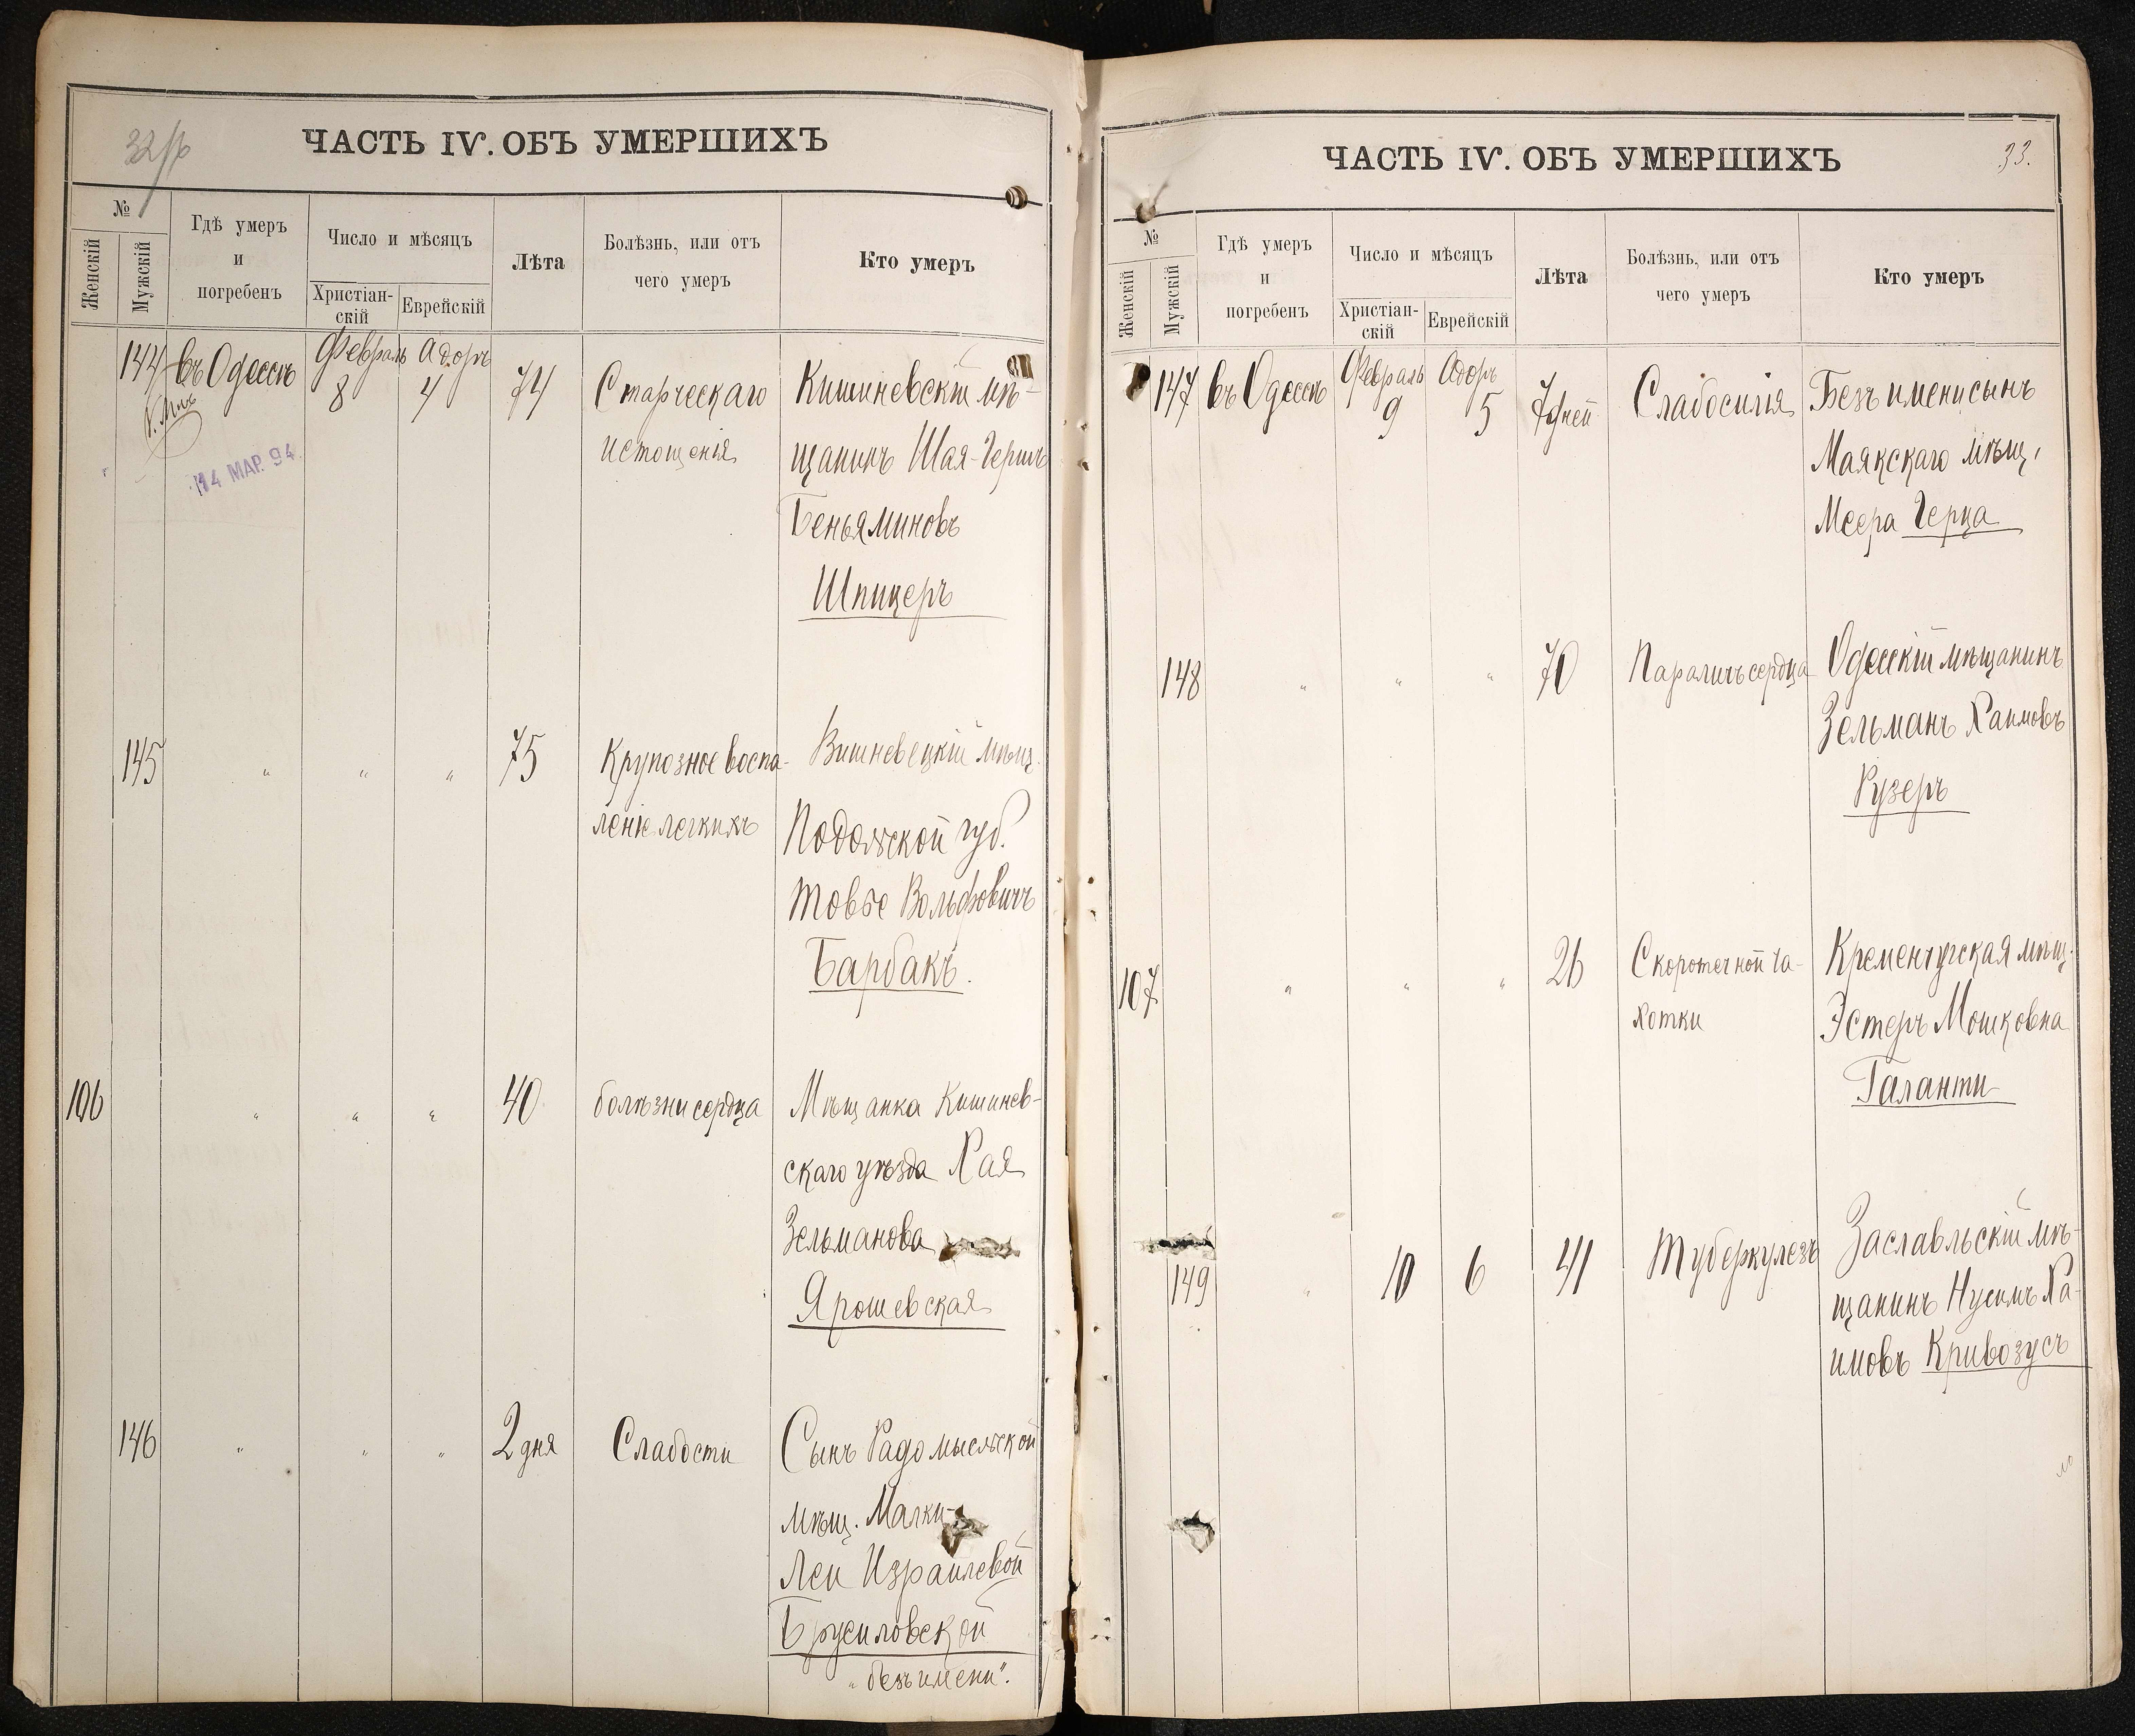 32/b
ЧАСТЬ IV. ОБЪ УМЕРШИХЪ
№
Женскій
Мужскій
Гдѣ умеръ
и
погребенъ
Число и мѣсяцъ
Христіан-
скій
Еврейскій
Лѣта
Болѣзнь, или отъ
чего умеръ
Кто умеръ
144 въ Одессѣ Февраль 8 Адоръ 4 74 Старческаго Кишиневскій мѣ-
истощенія щанинъ Шая-Гершъ
14 МАР. 94.
Беньяминовъ
Шпицеръ
145 " " " 75 Крупозное воспа- Вишневецкій мѣщ.
леніе легкихъ Подольской губ.
Товье Вольфовичъ
Барбакъ.
106 " " " 40 болѣзни сердца Мѣщанка Кишинев-
скаго уѣзда Хая
Зельманова
Ярошевская
146 " " " 2 дня Слабости Сынъ Радомысльской
мѣщ. Малки-
Леи Израилевой
Брусиловской
"безъ имени".
ЧАСТЬ IV. ОБЪ УМЕРШИХЪ
33.
№
Женскій
Мужскій
Гдѣ умеръ
и
погребенъ
Число и мѣсяцъ
Христіан-
скій
Еврейскій
Лѣта
Болѣзнь, или отъ
чего умеръ
Кто умеръ
147 въ Одессѣ Февраль 9 Адоръ 5 7 дней Слабосилія Безъ имени сынъ
Маякскаго мѣщ.
Меера Герца
148 " " " 70 Параличъ сердца Одесскій мѣщанинъ
Зельманъ Хаимовъ
Кузеръ
107 " " " 26 Скоротечной ча- Кременчугская мѣщ.
хотки Эстеръ Мошковна
Галанти
149 " 10 6 41 Туберкулезъ Заславльскій мѣ-
щанинъ Нусимъ Ха-
имовъ Кривозусъ